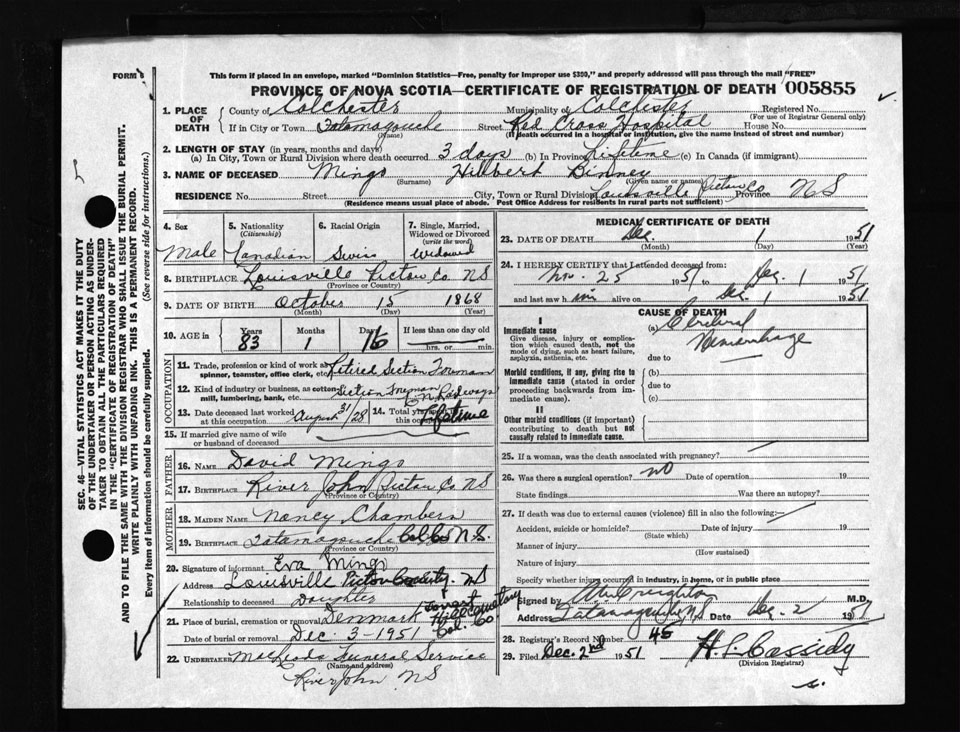 FORM 6
This form if placed in an envelope, marked "Dominion Statistics—Free, penalty for improper use $300," and properly addressed will pass through the mail "FREE"
PROVINCE OF NOVA SCOTIA—CERTIFICATE OF REGISTRATION OF DEATH 005855
1. PLACE OF DEATH
County of Colchester Municipality of Colchester Registered No.
(For use of Registrar General only)
If in City or Town Tatamagouche Street Red Cross Hospital House No.
(Name) (If death occurred in a hospital or institution, give the name instead of street and number)
2. LENGTH OF STAY (in years, months and days)
(a) In City, Town or Rural Division where death occurred 3 days (b) In Province Lifetime (c) In Canada (if immigrant)
3. NAME OF DECEASED Mingo Hilbert Binney
(Surname) (Given name or names)
RESIDENCE No. Street City, Town or Rural Division Louisville Pictou Co Province NS
(Residence means usual place of abode. Post Office Address for residents in rural parts not sufficient)
4. Sex
Male
5. Nationality
(Citizenship)
Canadian
6. Racial Origin
Swiss
7. Single, Married, Widowed or Divorced
(write the word)
Widowed
8. BIRTHPLACE Louisville Pictou Co NS
(Province or Country)
9. DATE OF BIRTH October 15 1868
(Month) (Day) (Year)
10. AGE in
Years Months Days If less than one day old
83 1 16 hrs. or min.
OCCUPATION
11. Trade, profession or kind of work as spinner, teamster, office clerk, etc. Retired Section Foreman
12. Kind of industry or business, as cotton mill, lumbering, bank, etc. Section Foreman CN Railways
13. Date deceased last worked at this occupation August 31/28
14. Total yrs. spent in this occupation Lifetime
15. If married give name of wife or husband of deceased
FATHER
16. NAME David Mingo
17. BIRTHPLACE River John Pictou Co NS
(Province or Country)
MOTHER
18. MAIDEN NAME Nancy Chambers
19. BIRTHPLACE Tatamagouche Col Co N.S.
(Province or Country)
20. Signature of informant Eva Mingo
Address Louisville Pictou County. NS
Relationship to deceased Daughter
21. Place of burial, cremation or removal Denmark Cemetery Col. Co
Date of burial or removal Dec. 3-1951
22. UNDERTAKER MacLeods Funeral Service
(Name and address)
River John NS
MEDICAL CERTIFICATE OF DEATH
23. DATE OF DEATH Dec. 1 1951
(Month) (Day) (Year)
24. I HEREBY CERTIFY that I attended deceased from:
Nov. 25 1951 to Dec. 1 1951
and last saw him alive on Dec. 1 1951
CAUSE OF DEATH
I
Immediate cause
Give disease, injury or complication which caused death, not the mode of dying, such as heart failure, asphyxia, asthenia, etc.
(a) Cerebral Hemorrhage
due to
Morbid conditions, if any, giving rise to immediate cause (stated in order proceeding backwards from immediate cause).
(b)
due to
(c)
II
Other morbid conditions (if important) contributing to death but not causally related to immediate cause.
25. If a woman, was the death associated with pregnancy?
26. Was there a surgical operation? no Date of operation 19
State findings Was there an autopsy?
27. If death was due to external causes (violence) fill in also the following:
Accident, suicide or homicide? Date of injury 19
(State which)
Manner of injury
(How sustained)
Nature of injury
Specify whether injury occurred in industry, in home, or in public place
Signed by Creighton M.D.
Address Tatamagouche, N.S. Date Dec 2 1951
28. Registrar's Record Number 45
29. Filed Dec. 2nd 1951 H. L. Cassidy
(Division Registrar)
SEC. 46—VITAL STATISTICS ACT MAKES IT THE DUTY
OF THE UNDERTAKER OR PERSON ACTING AS UNDERTAKER TO OBTAIN ALL THE PARTICULARS REQUIRED
IN THE "CERTIFICATE OF REGISTRATION OF DEATH"
AND TO FILE THE SAME WITH THE DIVISION REGISTRAR WHO SHALL ISSUE THE BURIAL PERMIT.
WRITE PLAINLY WITH UNFADING INK. THIS IS A PERMANENT RECORD.
Every item of information should be carefully supplied. (See reverse side for instructions.)